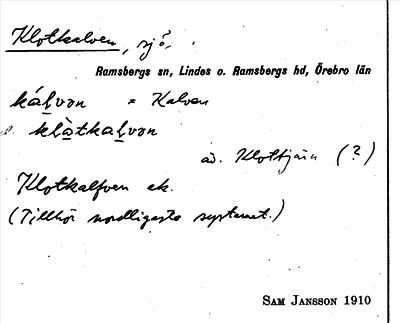 Klotkalven, sjö.
Ramsbergs sn, Lindes o. Ramsbergs hd, Örebro län
kálvən = Kalven
el. klàtkalvən
av. Klottjärn (?)
Klotkalfven ek.
(Tillhör nordligaste systemet.)
SAM JANSSON 1910